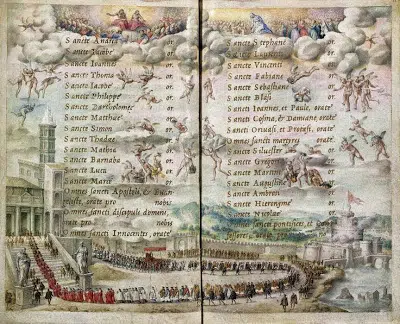 Sancte Andrea or.
Sancte Iacobe or.
Sancte Ioannes or.
Sancte Thoma or.
Sancte Iacobe or.
Sancte Philippe or.
Sancte Bartholomee or.
Sancte Matthaee or.
Sancte Simon or.
Sancte Thadaee or.
Sancte Mathia or.
Sancte Barnaba or.
Sancte Luca or.
Sancte Marce or.
Omnes sancti Apostoli, & Euan-
gelistae, orate pro nobis
Omnes sancti discipuli domini,
orate pro nobis
Omnes sancti Innocentes, orate
Sancte Stephane or.
Sancte Laurenti or.
Sancte Vincenti or.
Sancte Fabiane or.
Sancte Sebastiane or.
Sancte Blasi or.
Sancti Ioannes, et Paule, orate
Sancti Cosma, & Damiane, orate
Sancti Geruasi, et Protasi, orate
Omnes sancti martyres orate
Sancte Siluester or.
Sancte Gregori or.
Sancte Martine or.
Sancte Augustine or.
Sancte Ambrosi or.
Sancte Hieronyme or.
Sancte Nicolae or.
Omnes sancti pontifices, et con-
fessores, orate pro